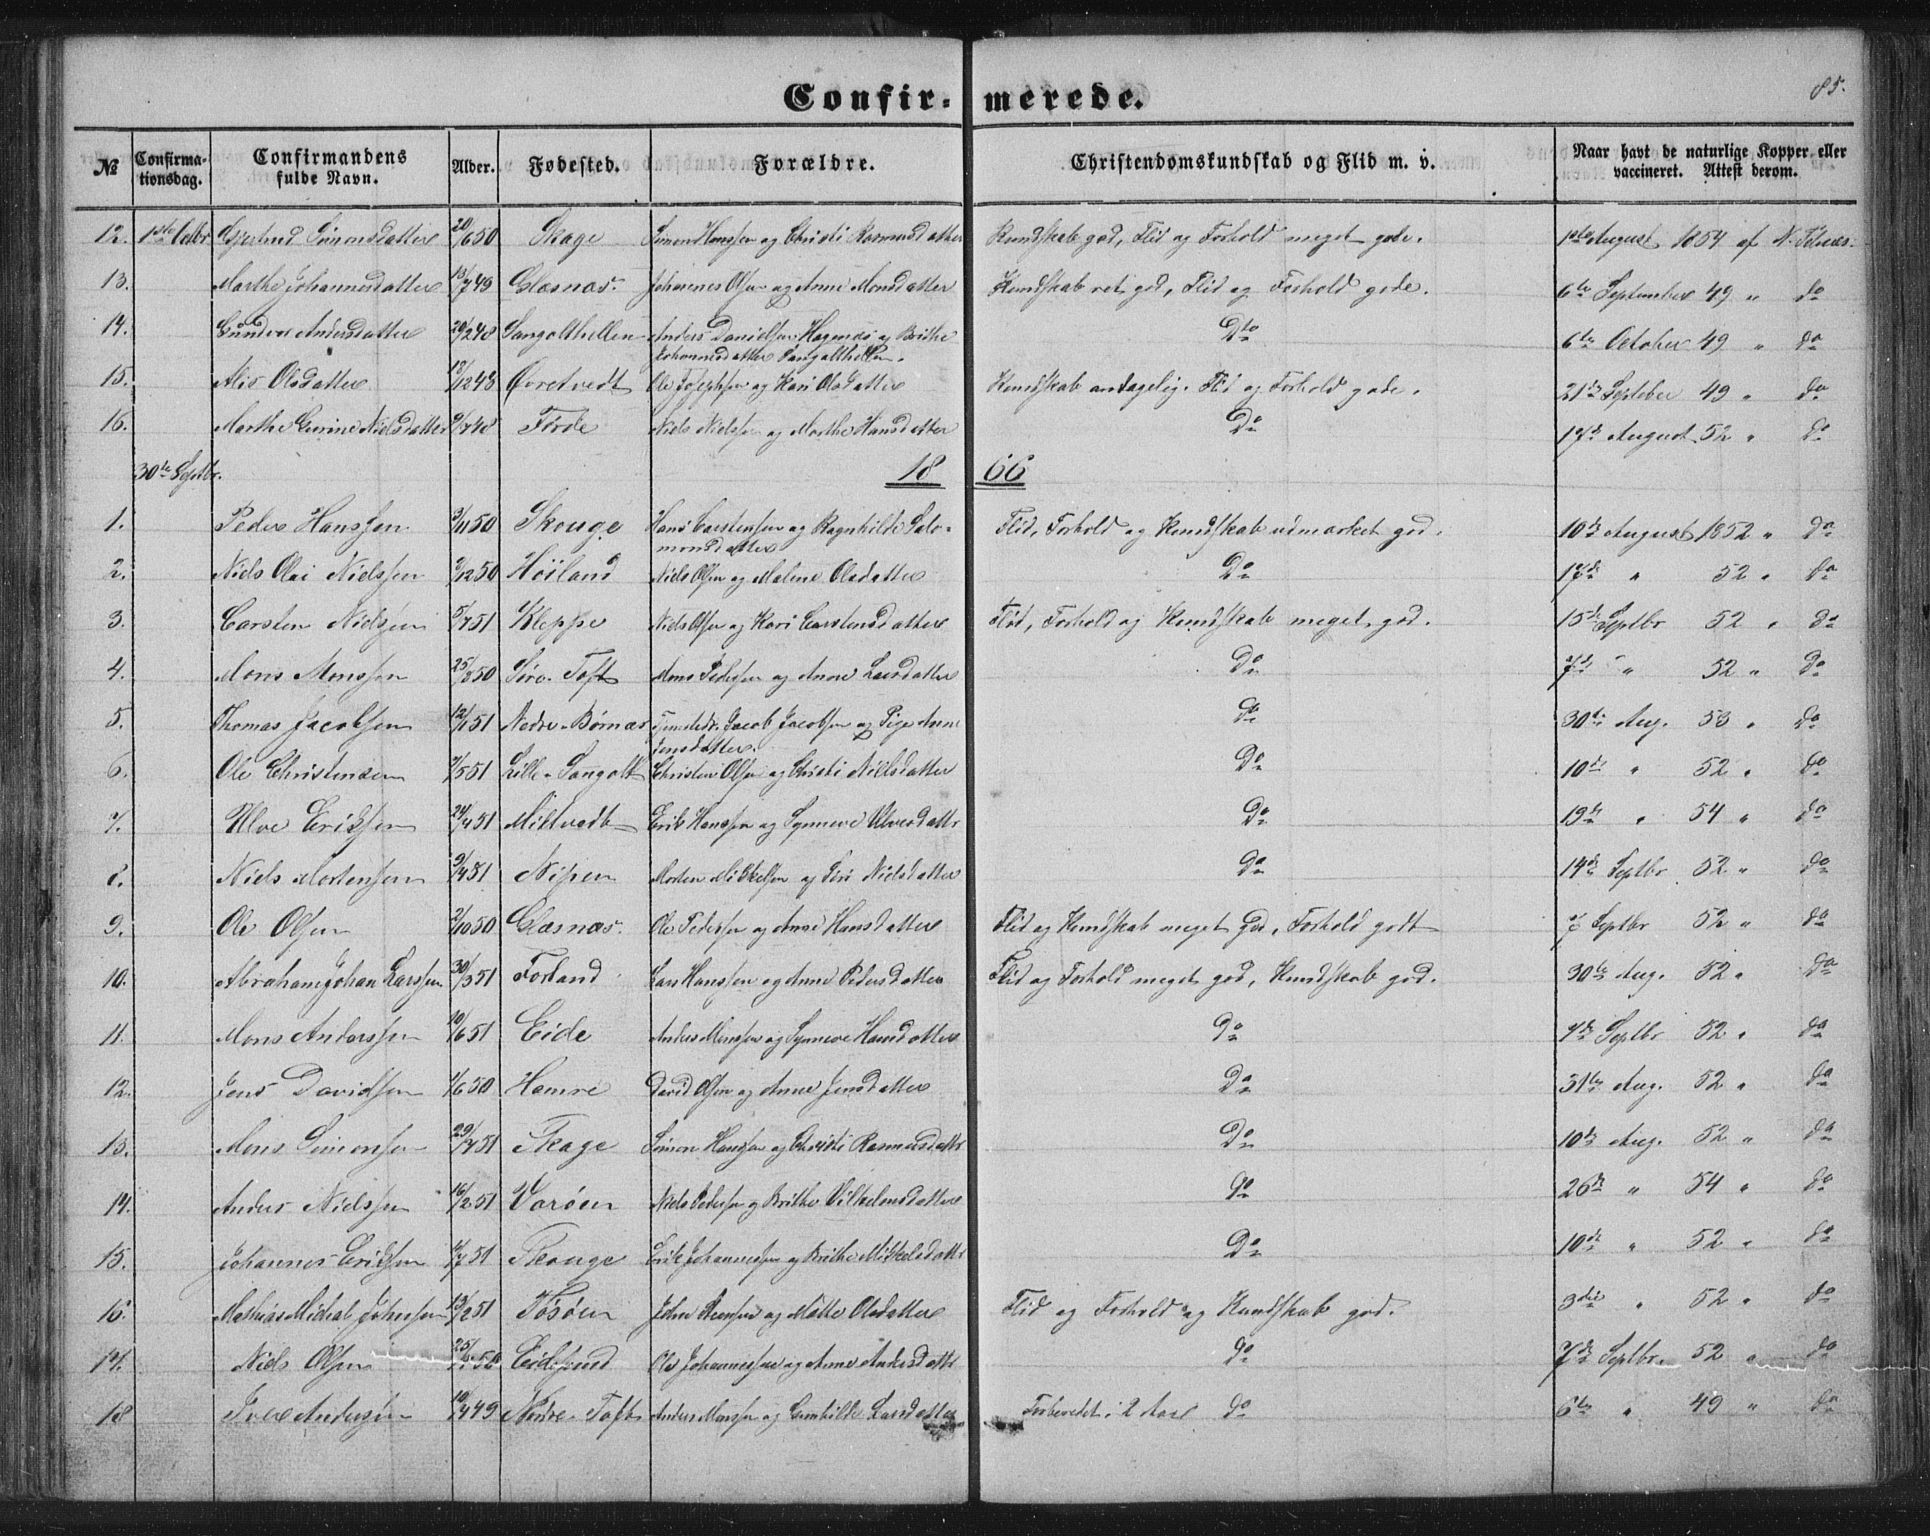 Confir- merede.
85.
№ Confirmationsdag. Confirmandens fulde Navn. Alder. Fødested. Forældre. Christendomskundskab og Flid m. v. Naar havt de naturlige Kopper eller vaccineret. Attest derom.
12. 1ste Octbr Simonsdatter 20/6 50 Skage Simon Hanssen og Christi Rasmusdatter Kundskab god, Flid og Forhold meget gode. August 1854 af N.
13. Marthe Johannesdatter 13/7 49 Glæsnæs Johannes Olsen og Anne Monsdatter Kundskab ret god, Flid og Forhold gode. 6te September 49 " do
14. Gunder Andersdatter 29/2 48 Sangolthellen Anders Danielsen Hagenæs og Brithe Johannesdatter Sangolthellen. Dto 6te October 49 " do
15. Alis Olsdatter 18/12 48 Ole Josephsen og Kari Olsdatter Kundskab antagelig. Flid og Forhold gode. 21de September 49 " do
16. Marthe Gurine Nielsdatter 9/7 48 Førde Niels Nielsen og Marthe Hansdatter Do 17de August 52 " do
30te Septbr. 18 66
1. Peder Hanssen 3/11 50 Skouge Hans Carstensen og Ragnhilde Salomonsdatter Flid, Forhold og Kundskab udmærket god. 10de August 1852 " do
2. Niels Olai Nielssen 9/12 50 Høiland Niels Olsen og Malene Olsdatter Do 17de " 52 " do
3. Carsten Nielsen 5/7 51 Kleppe Niels Olsen og Kari Carstensdatter Flid, Forhold og Kundskab meget god. 15de Septbr 52 " do
4. Mons Monssen 25/8 50 Søre Toft Mons Pedersen og Anne Larsdatter Do 7de " 52 " Do
5. Thomas Jacobsen 12/1 51 Nedre Børnæs Jacob Jacobsen og Pige Anne Jensdatter. do 30te Aug. 53 " do
6. Ole Christensen 7/5 51 Lille Sangolt Christen Olsen og Christi Nielsdatter Do 10de " 52 " do
7. Ulve Eriksen 24/4 51 Miltvedt Erik Hanssen og Synneve Ulvesdattr Do 19de " 54 " do
8. Niels Mortensen 9/4 51 Nipen Morten Mikkelsen og Siri Nielsdatter do 14de Septbr 52 " do
9. Ole Olsen 2/10 50 Glæsnæs Ole Pedersen og Anne Hansdatter Flid og Kundskab meget god, Forhold godt 7 Septbr 52 " do
10. Abraham Johan Larssen 30/3 51 Forland Lars Hanssen og Anne Pedersdatter Flid og Forhold meget god, Kundskab god. 30te Aug. 52 " do
11. Mons Anderssen 10/6 51 Eide Anders Monssen og Synneve Hansdatter Do 7de Septbr 52 " do
12. Jens Davidsen 1/6 50 Hamre David Olsen og Anne Jensdatter Do 31te Aug. 52 " do
13. Mons Simonsen 29/7 51 Skage Simon Hanssen og Christi Rasmusdattr Do 10de Aug. 52 " do
14. Anders Nielssen 16/2 51 Varøen Niels Pedersen og Brithe Vilhelmsdatter do 26de " 54 " do
15. Johannes Eriksen 11/7 51 Skouge Erik Johannessen og Brithe Mikkelsdattr Do 10de " 52 " do
16. Mathias Michal Johnsen 13/2 51 Tøsøen John Steensen og Mette Olsdatter Flid og Forhold og Kundskab god. 3die " 52 " do
17. Niels Olsen 50 Eidesund Ole Johannessen og Anne Andersdattr do 7de Septbr. 52 " do
18 Iver Andersen 10/4 49 Nordre Toft Anders Monssen og Gunhilde Larsdatter Forberedet i 2 Aar do 6te " 49 " do